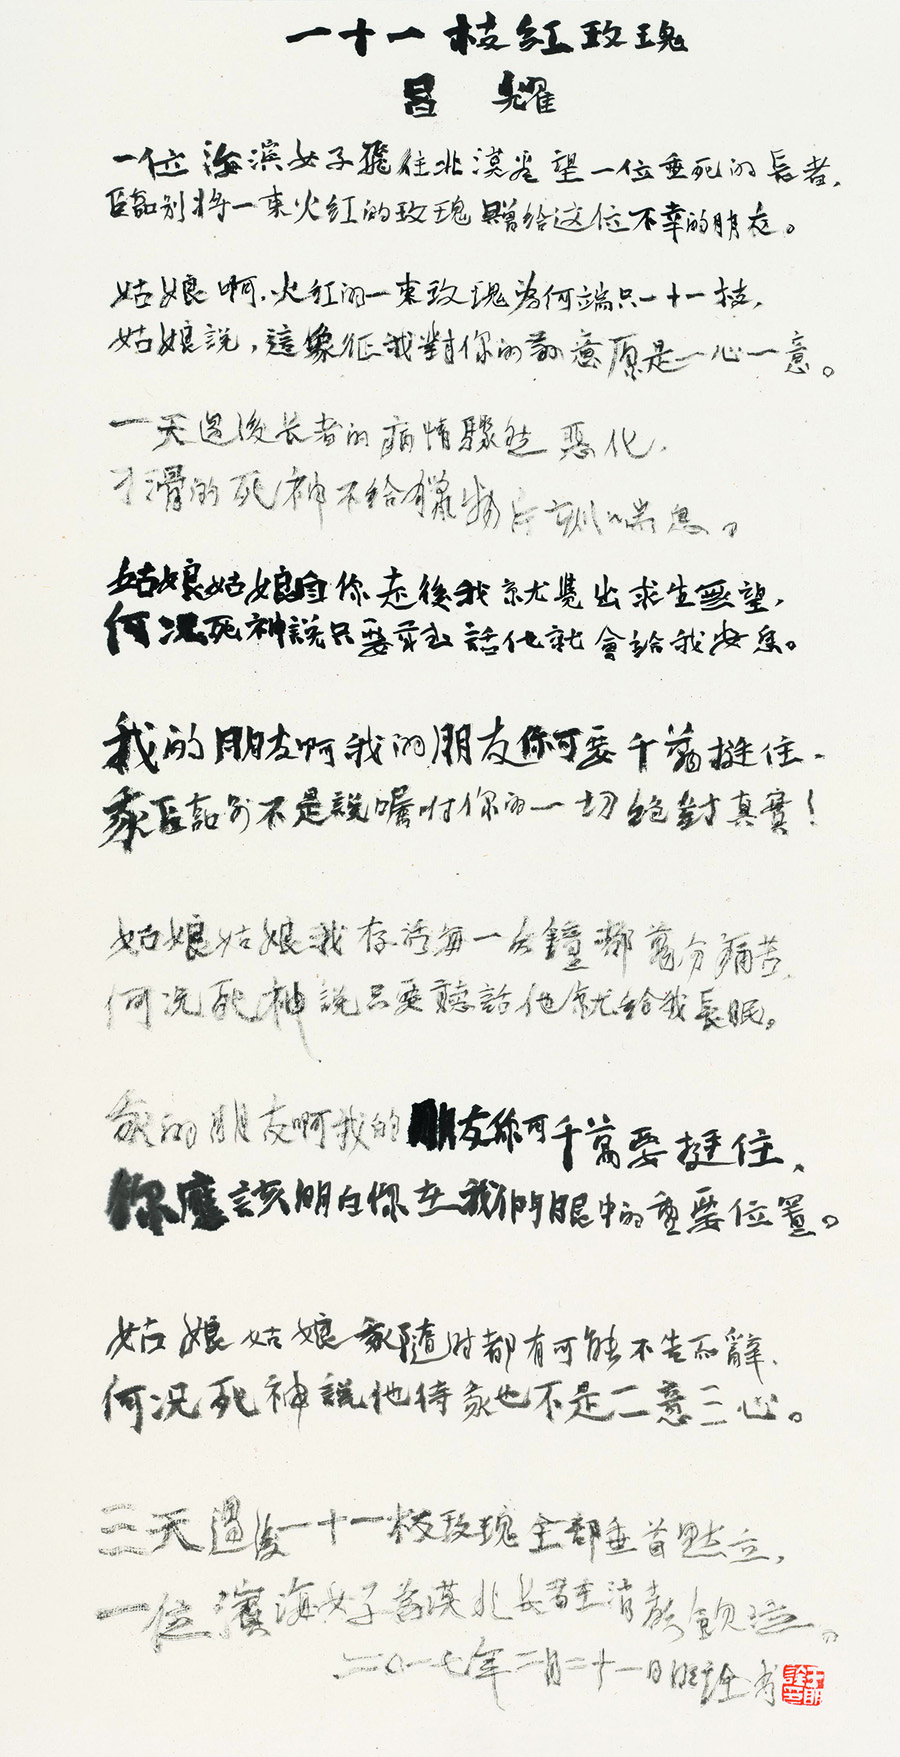 一十一枝紅玫瑰
昌耀
一位海滨女子飛往北漠看望一位垂死的長者,
臨别将一束火紅的玫瑰贈给这位不幸的朋友。
姑娘啊,火紅的一束玫瑰為何端只一十一枝,
姑娘說,這象征我對你的敬意原是一心一意。
一天過後长者的病情驟然惡化,
刁滑的死神不给獵物片刻喘息。
姑娘姑娘自你走後我就覺出求生無望,
何况死神說只要听話他就會給我安息。
我的朋友啊我的朋友你可要千萬挺住,
我臨别不是說囑咐你的一切絕對真實!
姑娘姑娘我存活每一分鐘都萬分痛苦,
何况死神說只要聽話他就给我長眠。
我的朋友啊我的朋友你可千萬要挺住,
你應該明白你在我們眼中的重要位置。
姑娘姑娘我隨时都有可能不告而辭,
何况死神說他待我也不是二意三心。
三天過後一十一枝玫瑰全部垂首默立,
一位濱海女子為漠北长者在消声飲泣。
二〇一七年二月二十一日明詮書